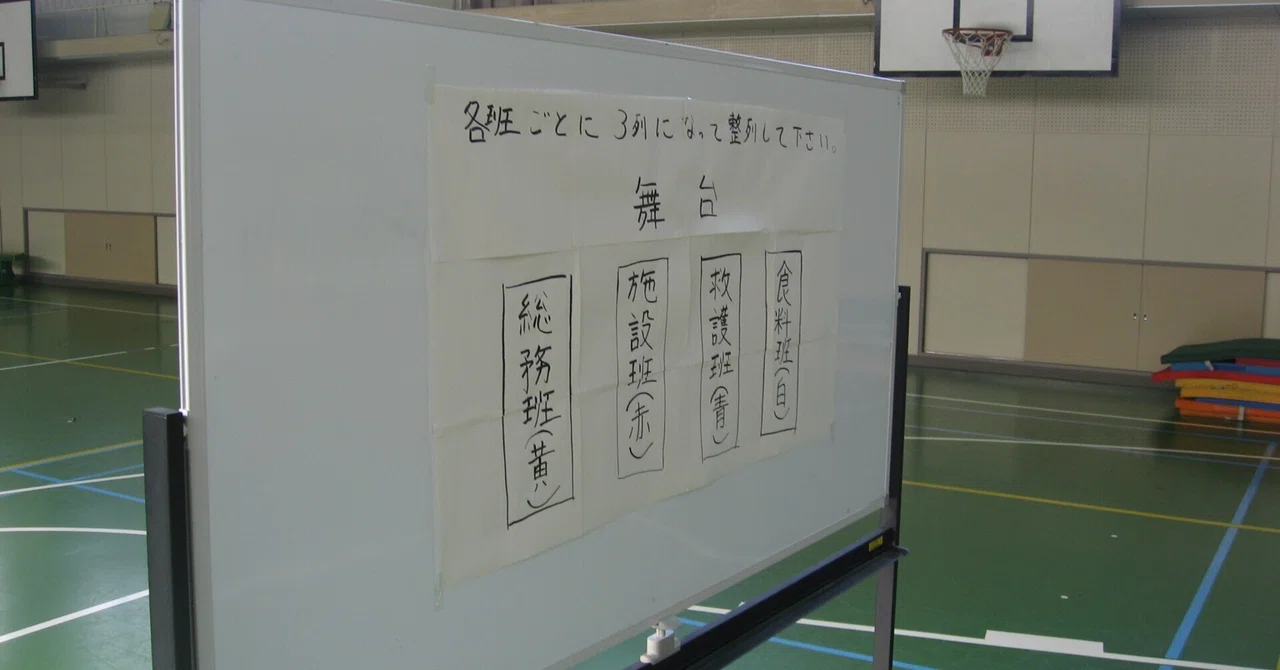 各班ごとに3列になって整列して下さい。
舞台
総務班(黄)
施設班(赤)
救護班(青)
食料班(白)